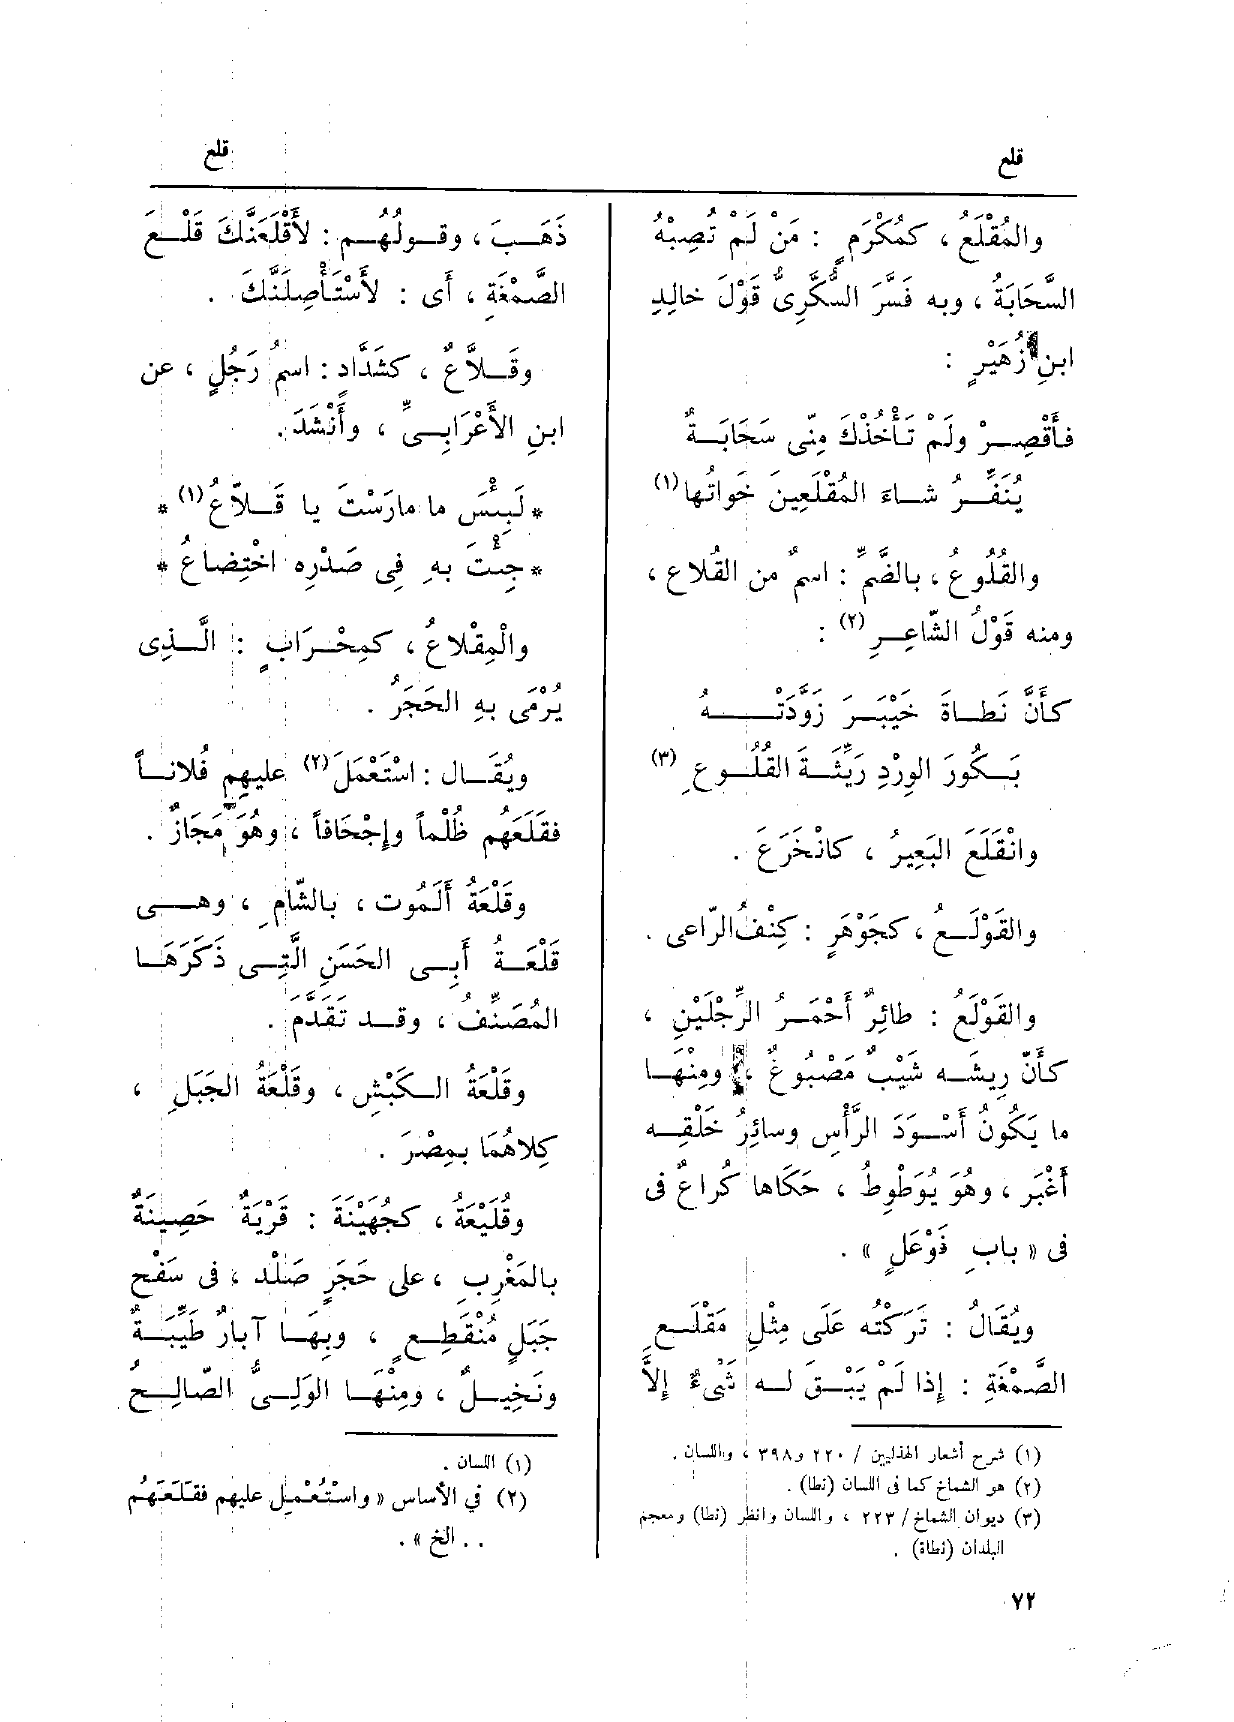 قلع
قلع
والمُقْلَعُ ، كمُكْرَمٍ : مَنْ لَمْ تُصِبْهُ
السَّحَابَةُ ، وبه فَسَّرَ السُّكَّرِىُّ قَوْلَ خالِدِ
ابنِ زُهَيْرٍ :
فأَقْصِرْ ولَمْ تَأْخُذْكَ مِنِّى سَحَابَةٌ
يُنَفِّرُ شاءَ المُقْلَعِينَ خَواتُها (١)
والقُلُوعُ ، بالضَّمِّ : اسمٌ من القُلاع ،
ومنه قَوْلُ الشّاعِرِ (٢) :
كأَنَّ نَطاةَ خَيْبَرَ زَوَّدَتْهُ
بَكُورَ الوِرْدِ رَيِّثَةَ القُلُوعِ (٣)
وانْقَلَعَ البَعِيرُ ، كانْخَرَعَ .
والقَوْلَعُ ، كجَوْهَرٍ : كِنْفُ الرّاعِى .
والقَوْلَعُ : طائِرٌ أَحْمَرُ الرِّجْلَيْنِ ،
كأَنّ رِيشَه شَيْبٌ مَصْبُوغٌ ، ومِنْهَا
ما يَكُونُ أَسْوَدَ الرَّأْسِ وسائِرُ خَلْقِه
أَغْبَر ، وهُوَ يُوَطْوِطُ ، حَكَاها كُراعٌ فى
فى « بابِ فَوْعَلٍ » .
ويُقَالُ : تَرَكْتُه عَلَى مِثْلِ مَقْلَعِ
الصَّمْغَةِ : إِذا لَمْ يَبْقَ لَه شَىْءٌ إِلاَّ
(١) شرح أشعار الهذليين / ٢٢٠ و٣٩٨ ، واللسان .
(٢) هو الشماخ كما فى اللسان (نطا) .
(٣) ديوان الشماخ / ٢٢٣ ، واللسان وانظر (نطا) ومعجم
البلدان (نطاة) .
ذَهَبَ ، وقولُهُم : لأَقْلَعَنَّكَ قَلْعَ
الصَّمْغَةِ ، أَى : لأَسْتَأْصِلَنَّكَ .
وقَلاَّعٌ ، كشَدَّادٍ : اسمُ رَجُلٍ ، عن
ابنِ الأَعْرَابِىِّ ، وأَنْشَدَ .
* لَبِئْسَ ما مارَسْتَ يا قَلاّعُ (١) *
* جِئْتَ بهِ فِى صَدْرِه اخْتِضاعُ *
والْمِقْلاعُ ، كمِحْرَابٍ : الَّذِى
يُرْمَى بهِ الحَجَرُ .
ويُقَال : اسْتَعْمَلَ (٢) عليهِم فُلاناً
فقَلَعَهُم ظُلْماً وإِجْحَافاً ، وهُوَ مَجَازٌ .
وقَلْعَةُ أَلَمُوت ، بالشّامِ ، وهِى
قَلْعَةُ أَبِى الحَسَنِ الَّتِى ذَكَرَهَا
المُصَنِّفُ ، وقد تَقَدَّمَ .
وقَلْعَةُ الكَبْشِ ، وقَلْعَةُ الجَبَلِ ،
كِلاهُمَا بمِصْرَ .
وقُلَيْعَةُ ، كجُهَيْنَةَ : قَرْيَةٌ حَصِينَةٌ
بالمَغْرِبِ ، على حَجَرٍ صَلْد ، فى سَفْح
جَبَلٍ مُنْقَطِعٍ ، وبِهَا آبارٌ طَيِّبَةٌ
ونَخِيلٌ ، ومِنْهَا الوَلِىُّ الصّالِحُ
(١) اللسان .
(٢) في الأساس « واسْتُعْمِل عليهم فقَلَعَهُم
. . الخ » .
٧٢